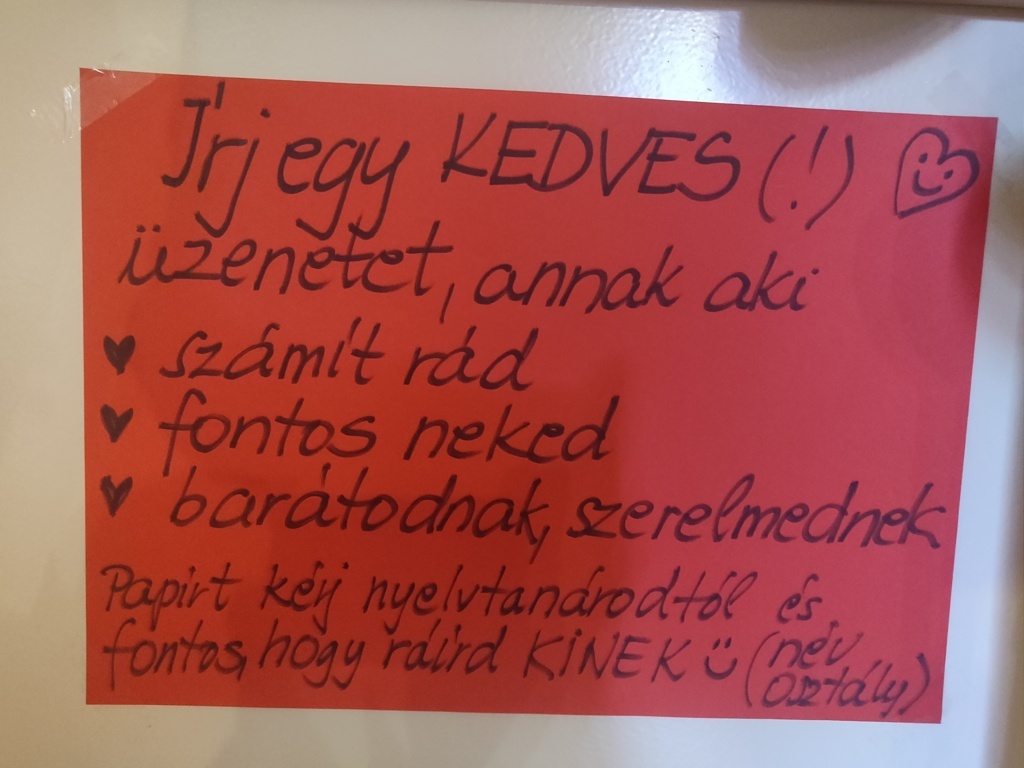 Írj egy KEDVES (!)
üzenetet, annak aki
számít rád
fontos neked
barátodnak, szerelmednek
Papírt kérj nyelvtanárodtól és
fontos, hogy ráírd KINEK (név
osztály)